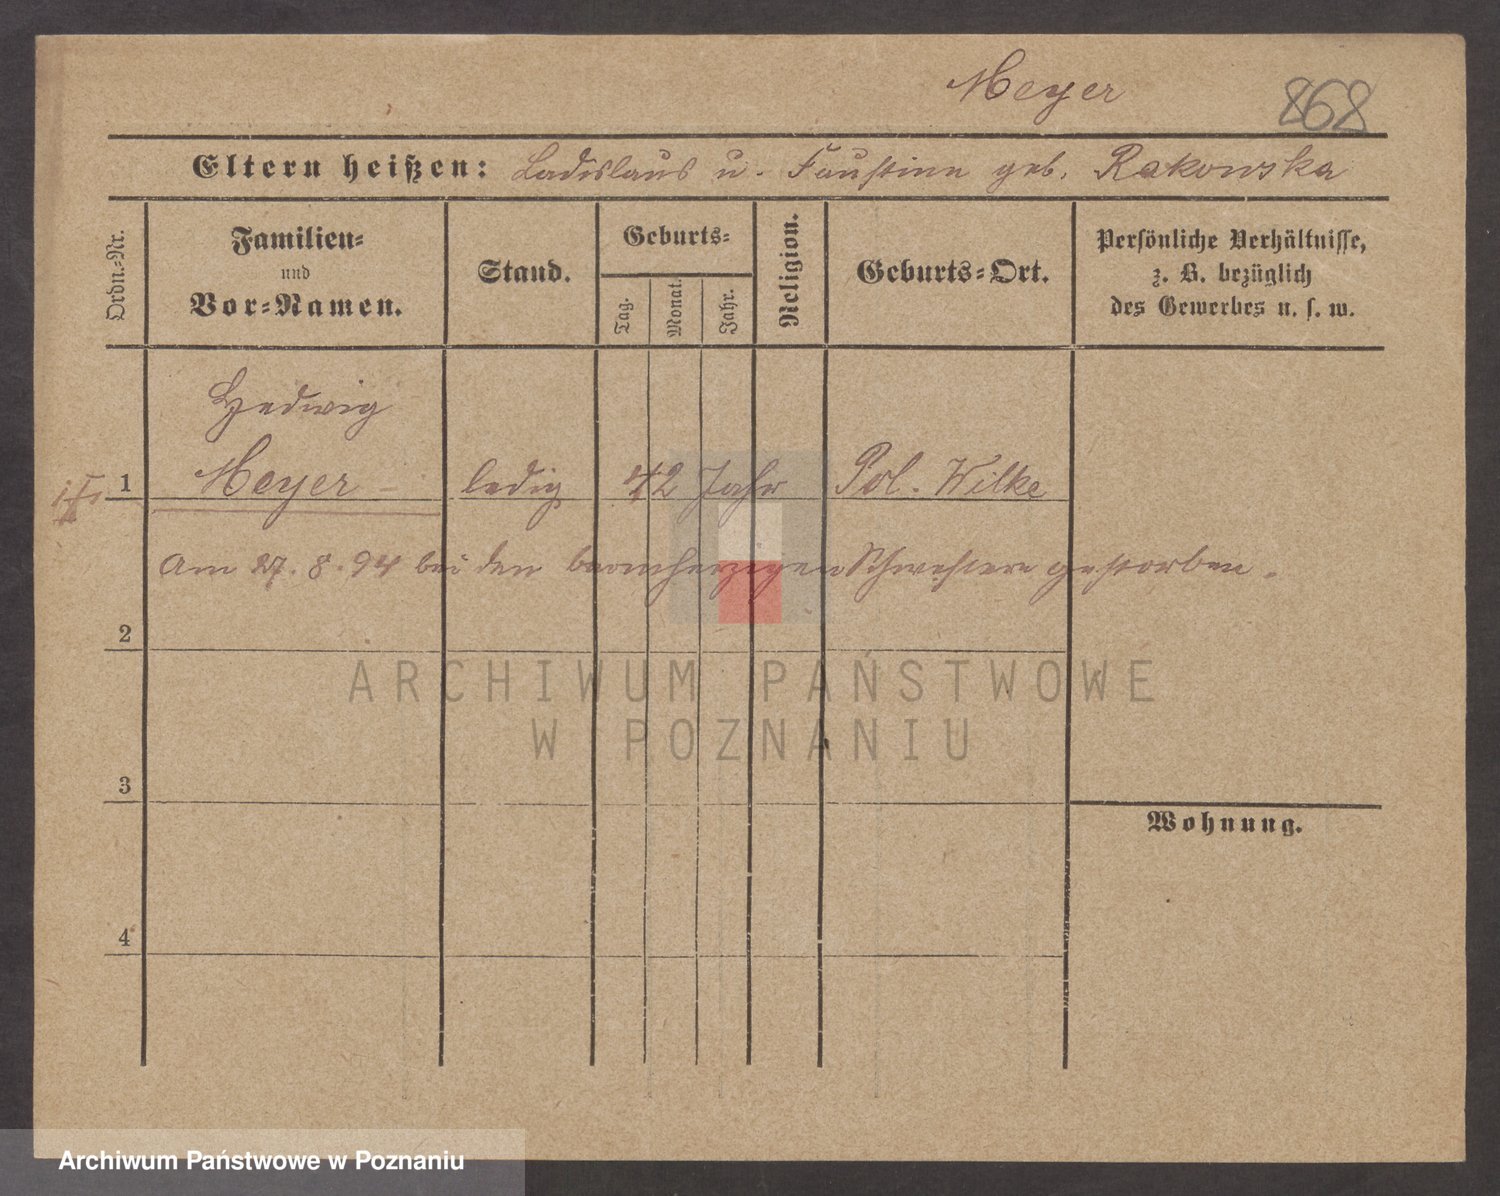 Meyer
868
Eltern heißen: Ladislaus u. Faustine geb. Rakowska
Ordn.-Nr.
Familien-
und
Vor-Namen.
Stand.
Geburts-
Tag.
Monat.
Jahr.
Religion.
Geburts-Ort.
Persönliche Verhältnisse,
z. B. bezüglich
des Gewerbes u. s. w.
Hedwig
1 Meyer ledig 42 Jahr Pol. Wilke
Am 27. 8. 94 bei den barmherzigen Schwestern gestorben.
2
ARCHIWUM PAŃSTWOWE
W POZNANIU
3
Wohnung.
4
Archiwum Państwowe w Poznaniu